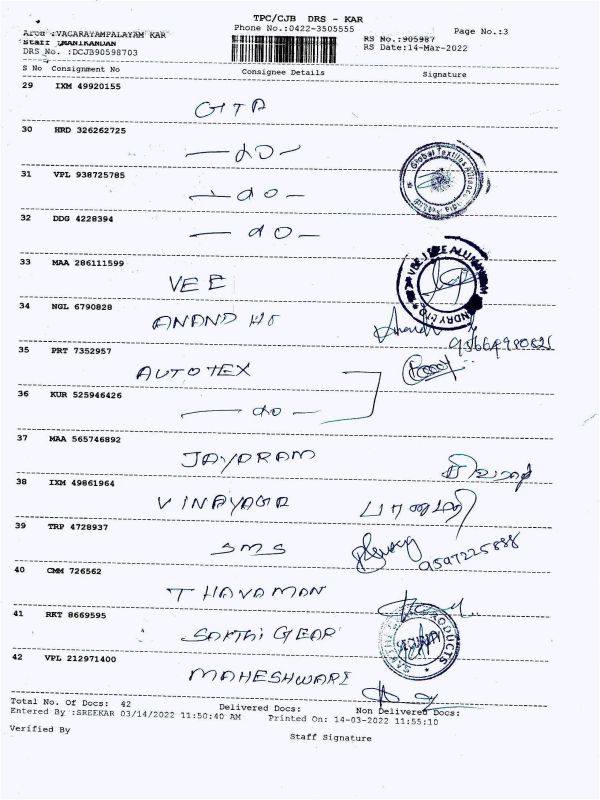 TPC/CJB DRS - KAR
Area :VAGARAYAMPALAYAM KAR
Phone No.:0422-3505555
Page No.:3
Staff :MANIKANDAN
RS No.:905987
DRS No. :DCJB90598703
RS Date:14-Mar-2022
S No Consignment No Consignee Details Signature
29 IXM 49920155
GITA
30 HRD 326262725
- do -
31 VPL 938725785
- do -
32 DDG 4228394
- do -
33 MAA 286111599
VEE
34 NGL 6790828
ANAND
35 PRT 7352957
AUTOTEX
36 KUR 525946426
- do -
37 MAA 565746892
JAYARAM
38 IXM 49861964
VINAYAGA
39 TRP 4728937
SMS
9597225888
40 CMM 726562
THAVAMAN
41 RKT 8669595
SAKTHI GEAR
42 VPL 212971400
MAHESHWARI
Total No. Of Docs: 42 Delivered Docs: Non Delivered Docs:
Entered By :SREEKAR 03/14/2022 11:50:40 AM Printed On: 14-03-2022 11:55:10
Verified By Staff Signature